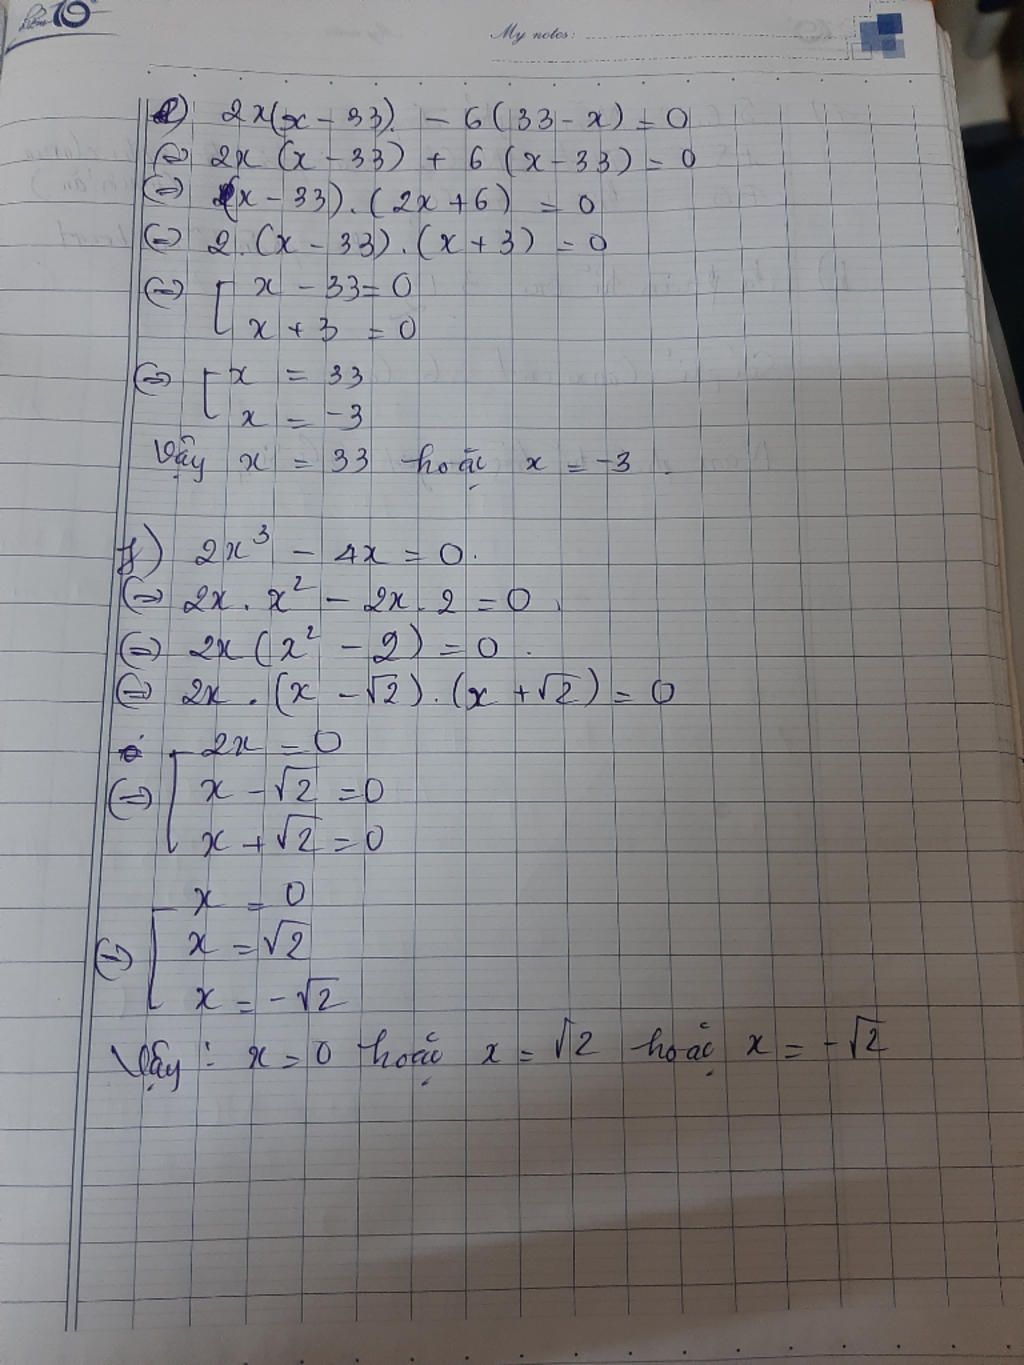 điểm 10
My notes:
e) 2x(x - 33). - 6(33 - x) = 0
(=) 2x (x - 33) + 6 (x - 33) = 0
(=) (x - 33).(2x + 6) = 0
(=) 2.(x - 33).(x + 3) = 0
(=) [ x - 33 = 0
x + 3 = 0
(=) [ x = 33
x = -3
Vậy x = 33 hoặc x = -3.
f) 2x³ - 4x = 0.
(=) 2x.x² - 2x.2 = 0.
(=) 2x(x² - 2) = 0.
(=) 2x.(x - √2).(x + √2) = 0
2x = 0
(=) [ x - √2 = 0
x + √2 = 0
x = 0
(=) [ x = √2
x = -√2
Vậy: x = 0 hoặc x = √2 hoặc x = -√2